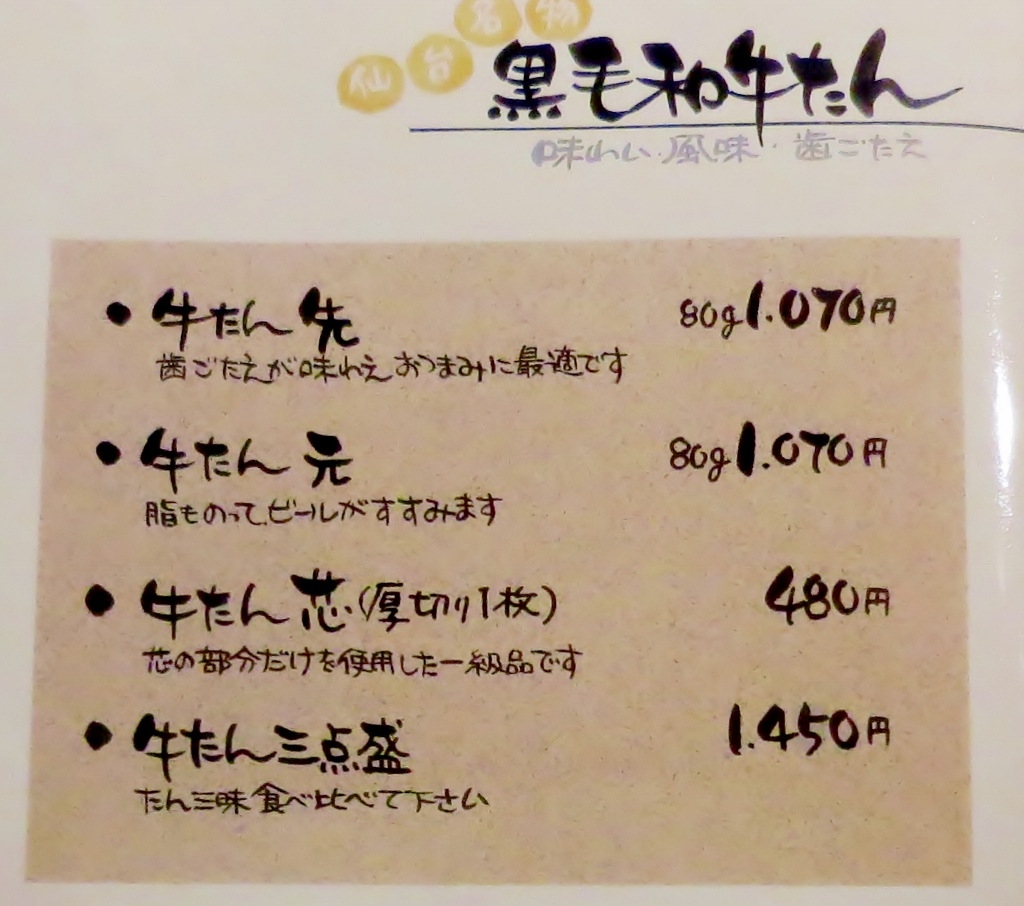 仙台名物
黒毛和牛たん
味わい・風味・歯ごたえ
• 牛たん 先 80g 1.070円
歯ごたえが味わえおつまみに最適です
• 牛たん 元 80g 1.070円
脂ものって、ビールがすすみます
• 牛たん 芯(厚切り1枚) 480円
芯の部分だけを使用した一級品です
• 牛たん三点盛 1.450円
たん三昧食べ比べて下さい